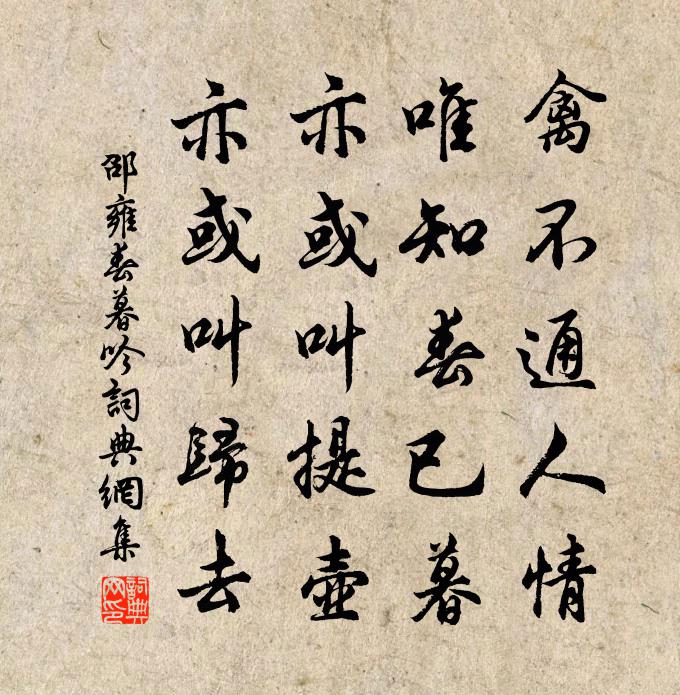 禽不通人情
唯知春已暮
亦或叫提壺
亦或叫歸去
邵雍春暮吟詞典網集
詞典
网印